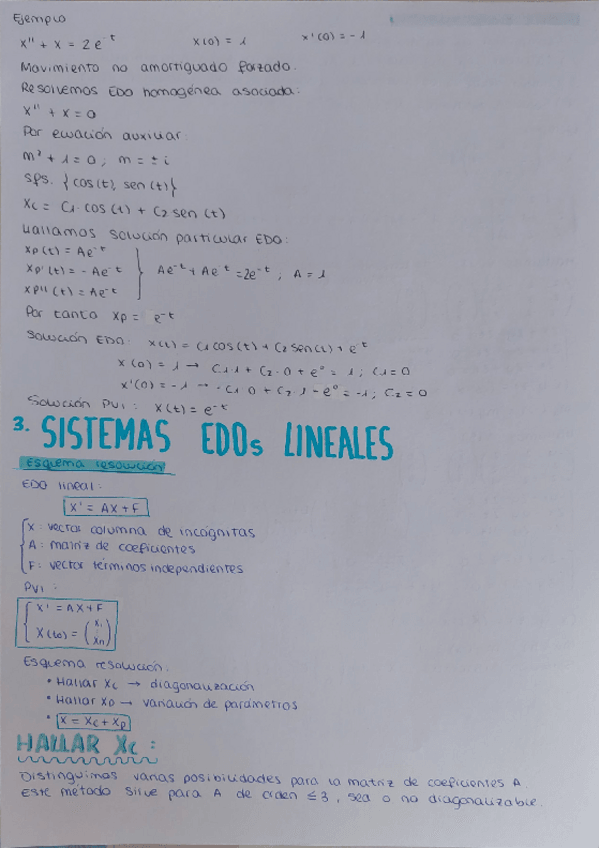 Ejemplo
x'' + x = 2e^-t   x(0) = 1   x'(0) = -1
Movimiento no amortiguado forzado.
Resolvemos EDO homogénea asociada:
x'' + x = 0
Por ecuación auxiliar:
m² + 1 = 0 ; m = ± i
SFS. {cos(t), sen(t)}
Xc = C1 · cos(t) + C2 sen(t)
Hallamos solución particular EDO:
xp(t) = Ae^-t
xp'(t) = -Ae^-t } Ae^-t + Ae^-t = 2e^-t ; A = 1
xp''(t) = Ae^-t
Por tanto xp = e^-t
Solución EDO: x(t) = C1 cos(t) + C2 sen(t) + e^-t
x(0) = 1 → C1·1 + C2·0 + e^0 = 1 ; C1 = 0
x'(0) = -1 → -C1·0 + C2·1 - e^0 = -1 ; C2 = 0
Solución PVI: x(t) = e^-t
3. SISTEMAS EDOs LINEALES
Esquema resolución
EDO lineal:
X' = AX + F
X: vector columna de incógnitas
A: matriz de coeficientes
F: vector términos independientes
PVI:
X' = AX + F
X(t0) = (x1 xn)
Esquema resolución.
• Hallar Xc → diagonalización
• Hallar Xp → variación de parámetros
• X = Xc + Xp
HALLAR Xc:
Distinguimos varias posibilidades para la matriz de coeficientes A.
Este método sirve para A de orden ≤ 3, sea o no diagonalizable.